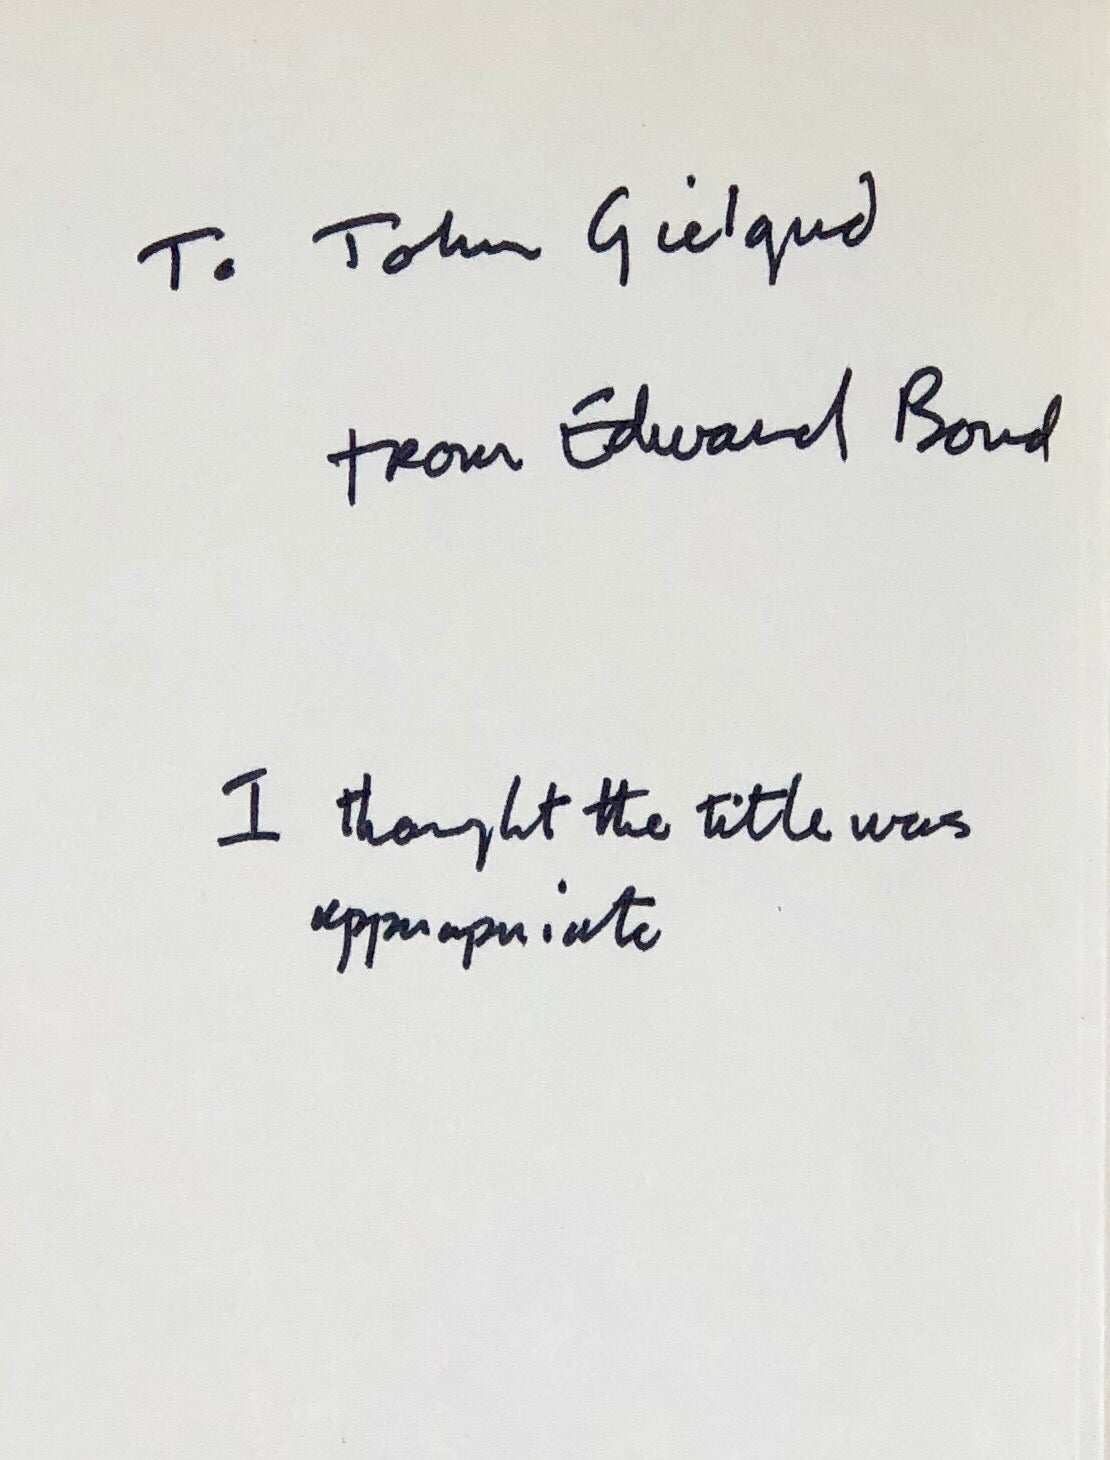 To John Gielgud
from Edward Bond
I thought the title was
appropriate